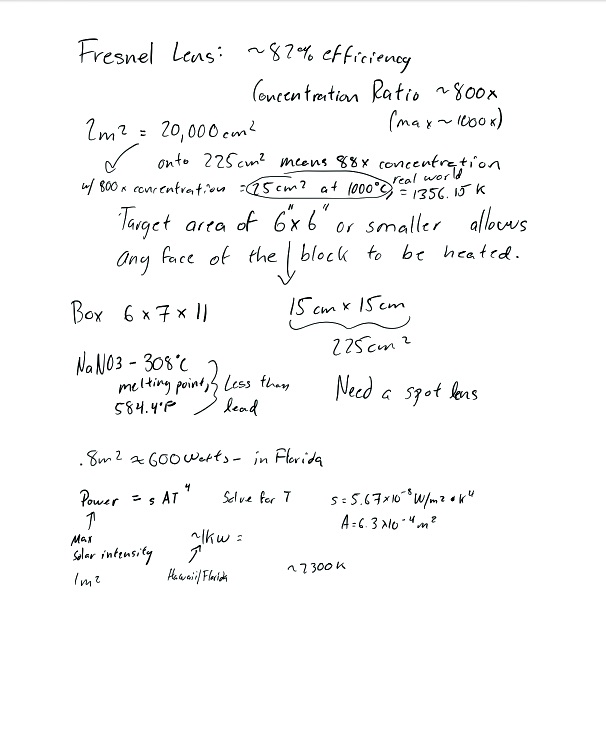 Fresnel Lens: ~82% efficiency
Concentration Ratio ~800x
(max ~1000x)
2m² = 20,000cm²
onto 225cm² means 88x concentration
w/ 800x concentration = 25cm² at 1000°C, real world = 1356.15 K
Target area of 6"x6" or smaller allows
any face of the block to be heated.
Box 6x7x11
15cm x 15cm
225cm²
NaNO3 - 308°C
melting point, } Less than
584.4°F lead
Need a spot lens
.8m² ≈ 600Watts - in Florida
Power = sAT⁴ Solve for T s=5.67x10⁻⁸ W/m²•K⁴
A=6.3x10⁻⁴m²
Max
Solar intensity
1m²
~1KW =
Hawaii/Florida
~2300K